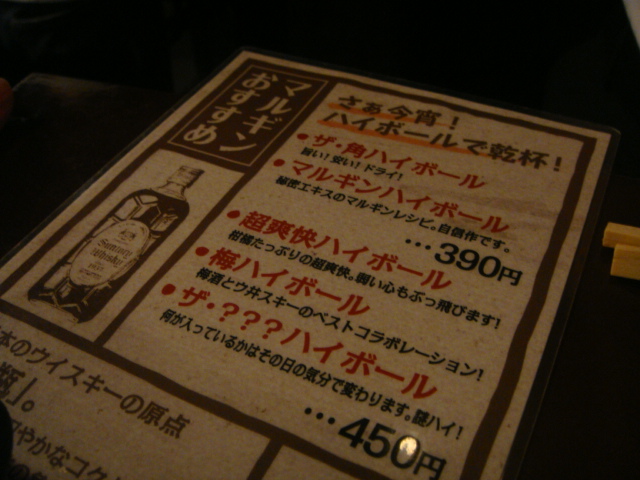 マルギン
おすすめ
さぁ今宵！
ハイボールで乾杯！
●ザ・角ハイボール
旨い！安い！ドライ！
●マルギンハイボール
秘密エキスのマルギンレシピ。自信作です。
…390円
●超爽快ハイボール
柑橘たっぷりの超爽快。弱い心もぶっ飛びます！
●梅ハイボール
梅酒とウ井スキーのベストコラボレーション！
●ザ・？？？ハイボール
何が入っているかはその日の気分で変わります。謎ハイ！
…450円
Suntory
Whisky
本のウイスキーの原点
瓶」。
やかなコク